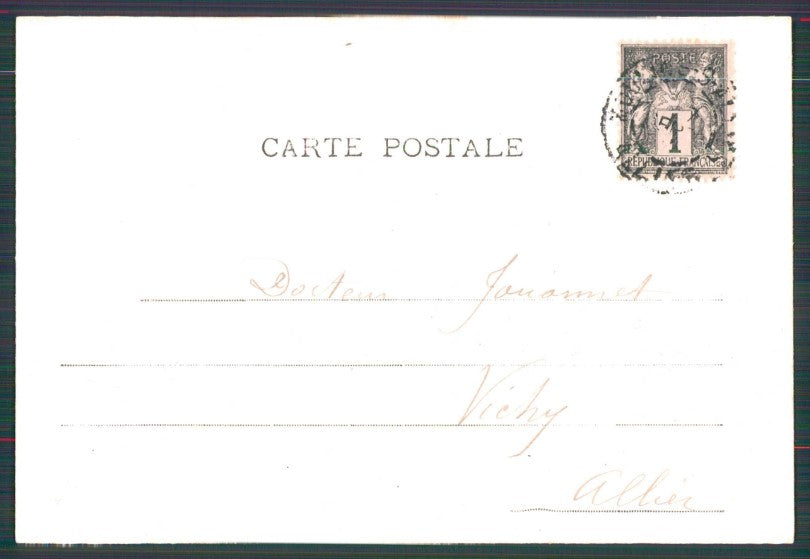 POSTE
1
REPUBLIQUE FRANÇAISE
CARTE POSTALE
Docteur Jouannet
Vichy
Allier